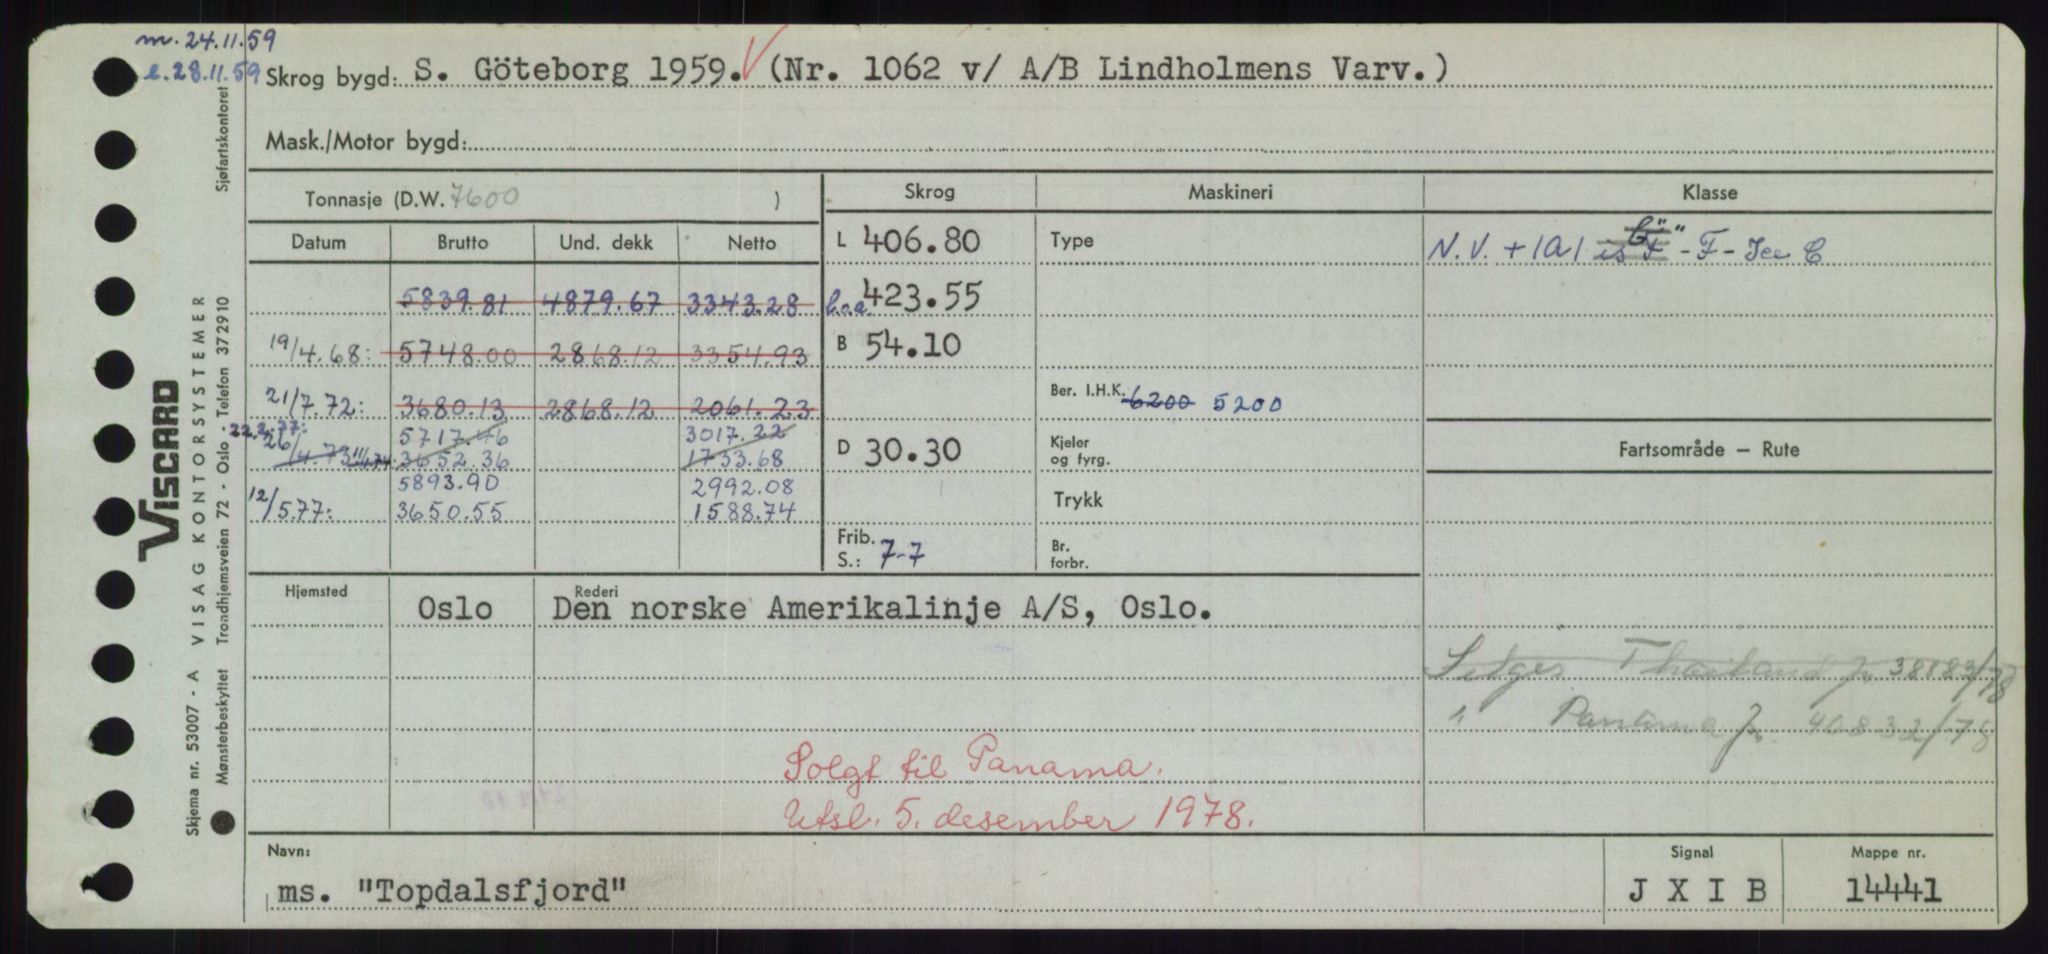 m. 24.11.59
l. 28.11.59
Skrog bygd: S. Göteborg 1959. (Nr. 1062 v/ A/B Lindholmens Varv.)
Mask./Motor bygd:
Tonnasje (D.W. 7600 )
Skrog
Maskineri
Klasse
Datum Brutto Und. dekk Netto
5839.81 4879.67 3343.28
19/4.68: 5748.00 2868.12 3354.93
21/7.72: 3680.13 2868.12 2061.23
22.2.77: 5717.46 3017.22
26/4.73 3652.36 1753.68
5893.90 2992.08
12/5.77: 3650.55 1588.74
L 406.80
b.o.a. 423.55
B 54.10
D 30.30
Frib.
S.: 7-7
Type
Ber. I.H.K. 6200 5200
Kjeler
og fyrg.
Trykk
Br.
forbr.
N.V. + 1A1 is F" - F - Ice C
Fartsområde – Rute
Hjemsted
Oslo
Rederi
Den norske Amerikalinje A/S, Oslo.
Selges Thailand Jn 38183/78
" Panama Jn. 40832/78
Solgt til Panama.
Utsl. 5. desember 1978.
Navn:
ms. "Topdalsfjord"
Signal
J X I B
Mappe nr.
14441
VISCARD
VISAG KONTORSYSTEMER
Skjema nr. 53007 - A
Mønsterbeskyttet
Trondhjemsveien 72 - Oslo - Telefon 372910
Sjøfartskontoret